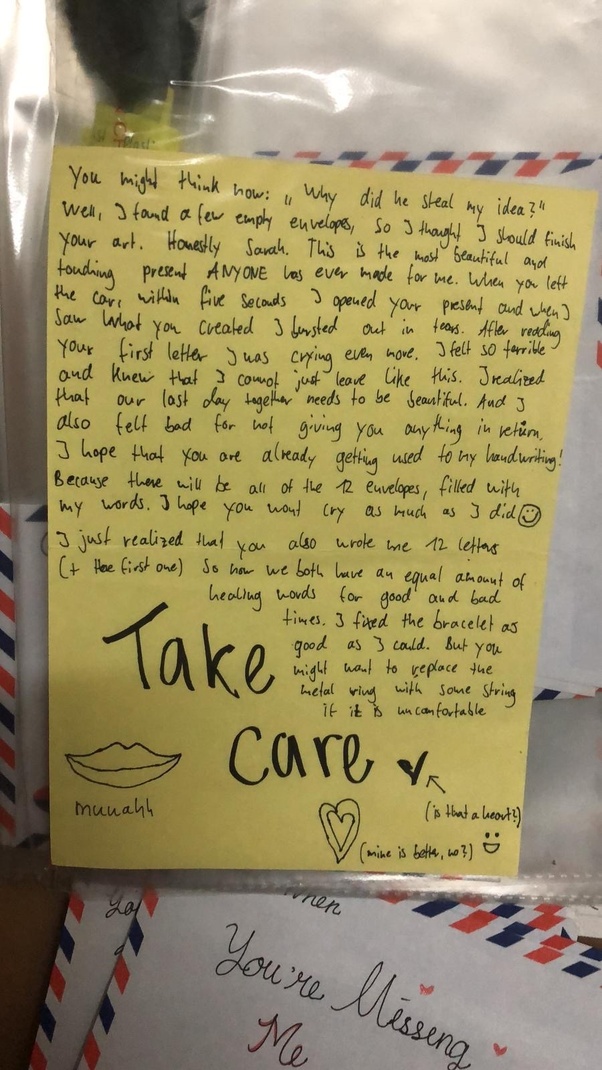 You might think now: „Why did he steal my idea?"
Well, I found a few empty envelopes, so I thought I should finish
your art. Honestly Sarah. This is the most beautiful and
touching present ANYONE has ever made for me. When you left
the car, within five seconds I opened your present and when I
saw what you created I bursted out in tears. After reading
your first letter I was crying even more. I felt so terrible
and knew that I cannot just leave like this. I realized
that our last day together needs to be beautiful. And I
also felt bad for not giving you anything in return.
I hope that you are already getting used to my handwriting!
Because there will be all of the 12 envelopes, filled with
my words. I hope you wont cry as much as I did
I just realized that you also wrote me 12 letters
(+ the first one) So now we both have an equal amount of
healing words for good and bad
times. I fixed the bracelet as
good as I could. But you
might want to replace the
metal ring with some string
if it is uncomfortable
Take
Care
muuahh
(is that a heart?)
(mine is better, no?)
When
You're Missing
Me